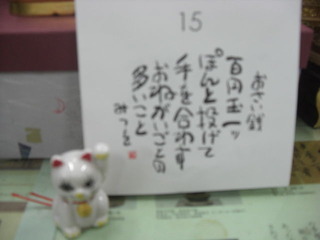 15
おさい銭
百円玉一ッ
ぽんと投げて
手を合わす
おねがいごとの
多いこと
みつを